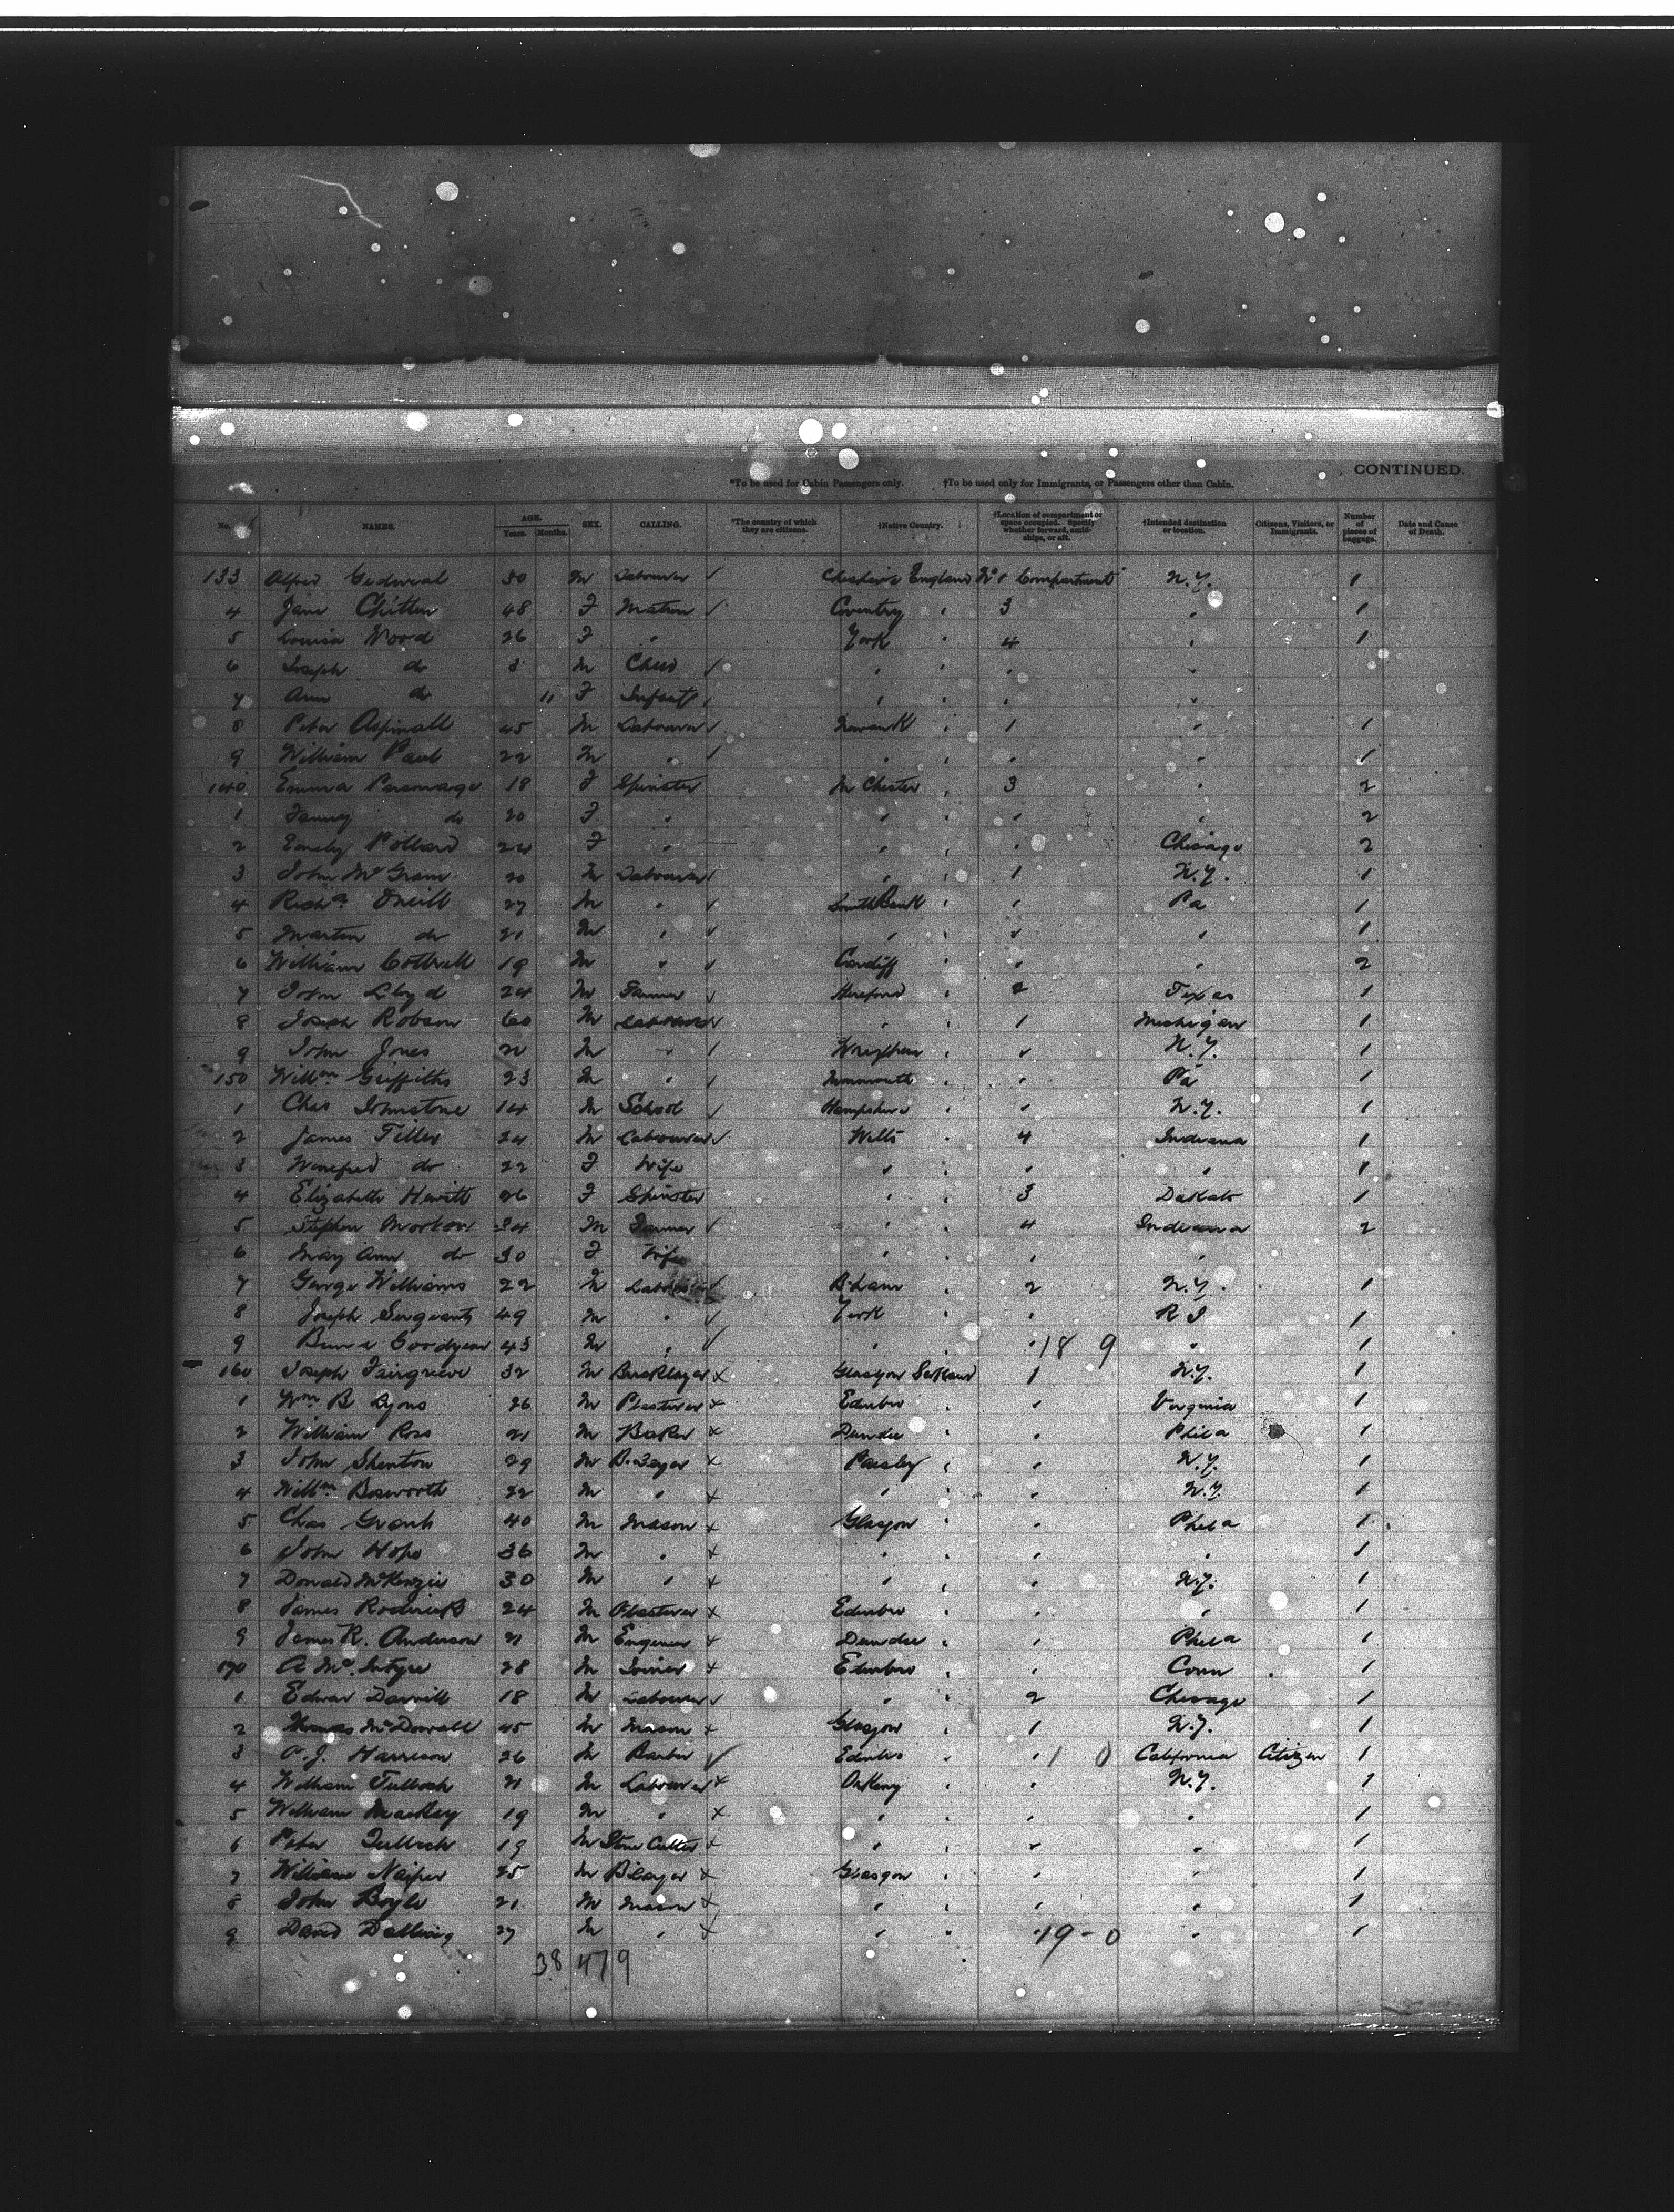 CONTINUED.
*To be used for Cabin Passengers only. †To be used only for Immigrants, or Passengers other than Cabin.
No. NAMES. AGE. Years. Months. SEX. CALLING. *The country of which they are citizens. †Native Country. †Location of compartment or space occupied. Specify whether forward, amidships, or aft. †Intended destination or location. Citizens, Visitors, or Immigrants. Number of pieces of baggage. Date and Cause of Death.
133 Alfred 30 M Labourer ✓ Cheshire England No 1 Compartment N.Y. 1
4 Jane Chitten 48 F Matron ✓ Coventry " 3 " 1
5 Louisa Wood 26 F " York " 4 " 1
6 Joseph do 3 M Child ✓ " " " "
7 Ann do 11 F Infant ✓ " " " "
8 Peter Aspinall 45 M Labourer ✓ Newark " 1 " 1
9 William Paul 22 M " ✓ " " " " 1
140 Emma Parsonage 18 F Spinster M Chester " 3 " 2
1 Fanny do 20 F " " " " " 2
2 Emily Pollard 24 F " " " " Chicago 2
3 John McGram 20 M Labourer ✓ " " 1 N.Y. 1
4 Richd Oneill 27 M " ✓ South Bank " " Pa 1
5 Martin do 21 M " ✓ " " " " 1
6 William Cottrell 19 M " ✓ Cardiff " " " 2
7 John Lloyd 24 M Farmer ✓ Hereford " 2 Texas 1
8 Joseph Robson 60 M Labourer ✓ " " 1 Michigan 1
9 John Jones 21 M " ✓ Wrexham " " N.Y. 1
150 Willm Griffiths 23 M " ✓ Monmouth " " Pa 1
1 Chas Johnstone 14 M School ✓ Hampshire " " N.Y. 1
2 James Tiller 24 M Labourer ✓ Wilts " 4 Indiana 1
3 Winefred do 22 F Wife " " " " 1
4 Elizabeth Hewitt 26 F Spinster " " 3 Dakato 1
5 Stephen Morton 34 M Farmer ✓ " " 4 Indiana 2
6 Mary Ann do 30 F Wife " " " "
7 George Williams 22 M Labourer ✓ B.ham " 2 N.Y. 1
8 Joseph Sergeant 49 M " ✓ York " " R I 1
9 Goodyear 43 M " ✓ " " " 18 9 " 1
160 Joseph Fairgrieve 32 M Bricklayer x Glasgow Scotland 1 N.Y. 1
1 Wm B Lyons 26 M Plasterer x Edinbro " " Virginia 1
2 William Ross 21 M Baker x Dundee " " Phila 1
3 John Shenton 29 M B.Layer x Paisley " " N.Y. 1
4 Willm Bosworth 22 M " x " " " N.Y. 1
5 Chas Grant 40 M Mason x Glasgow " " Phila 1
6 John Hope 36 M " x " " " " 1
7 Donald McKenzie 30 M " x " " " N.Y. 1
8 James Roderick 24 M Plasterer x Edinbro " " " 1
9 James R. Anderson 21 M Engineer x Dundee " " Phila 1
170 A McIntyre 28 M Joiner x Edinbro " " Conn 1
1 Edwar Darvill 18 M Labourer ✓ " " 2 Chicago 1
2 Thomas McDowall 45 M Mason x Glasgow " 1 N.Y. 1
3 P.J. Harrison 26 M Barber ✓ Edinbro " " 1 0 California Citizen 1
4 William Tulloch 21 M Labourer x Orkney " " N.Y. 1
5 William MacKay 19 M " x " " " " 1
6 Peter Tulloch 19 M Stone Cutter x " " " " 1
7 William Naiper 25 M B layer x Glasgow " " " 1
8 John Boyle 21 M Mason x " " " " 1
9 David Dalling 27 M " x " " " 19-0 " 1
38 47 9